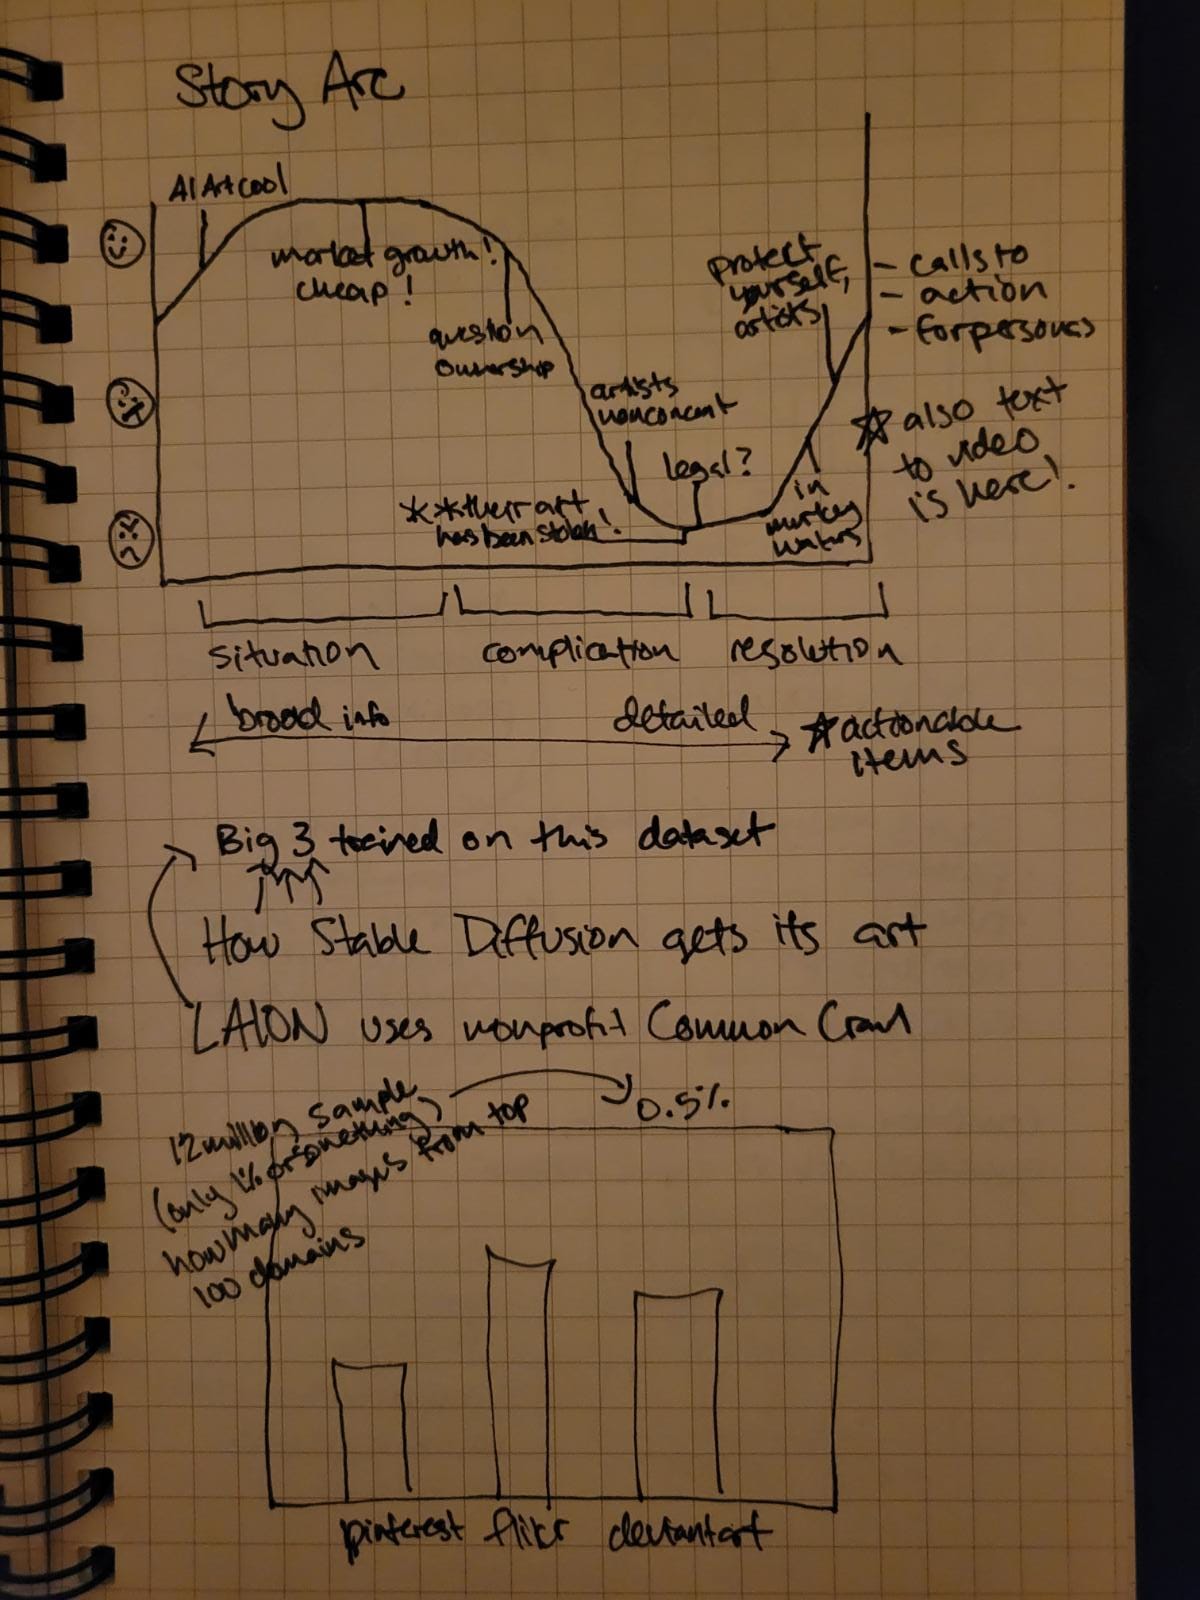 Story Arc
AI Art cool
market growth!
cheap!
question
ownership
artists
nonconcent
legal?
**their art
has been stolen!
in
murkey
waters
protect
yourself,
artists
- calls to
- action
- for personas
☆ also text
to video
is here!
situation
complication
resolution
broad info
detailed
☆ actionable
items
Big 3 trained on this dataset
How Stable Diffusion gets its art
LAION uses nonprofit Common Crawl
12 million sample,
(only 1% or something)
how many images from top
100 domains
0.5%
pinterest flikr deviantart